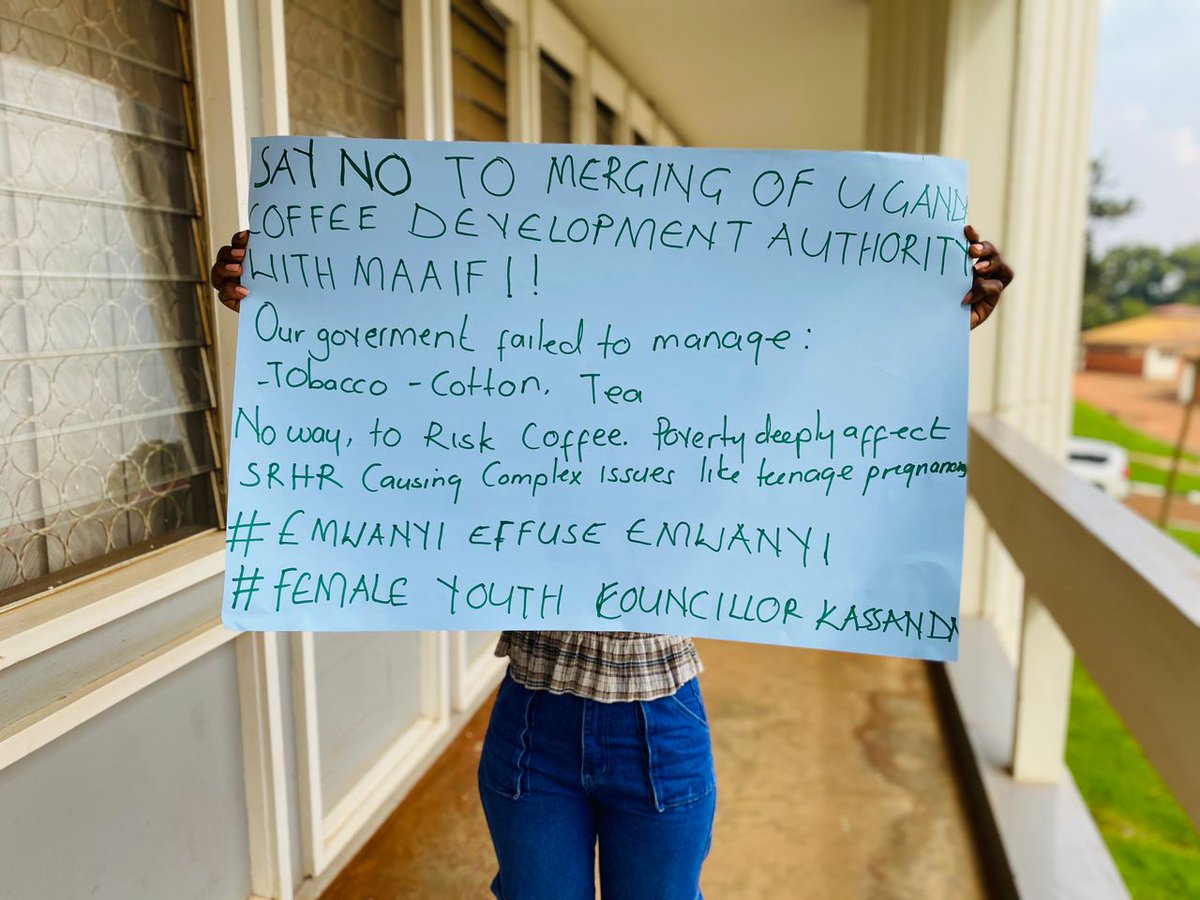 SAY NO TO MERGING OF UGANDA
COFFEE DEVELOPMENT AUTHORITY
WITH MAAIF!!
Our goverment failed to manage:
-Tobacco - Cotton, Tea
No way, to Risk Coffee. Poverty deeply affect
SRHR Causing Complex issues like teenage pregnancy
# EMWANYI EFFUSE EMWANYI
# FEMALE YOUTH COUNCILLOR KASSANDA